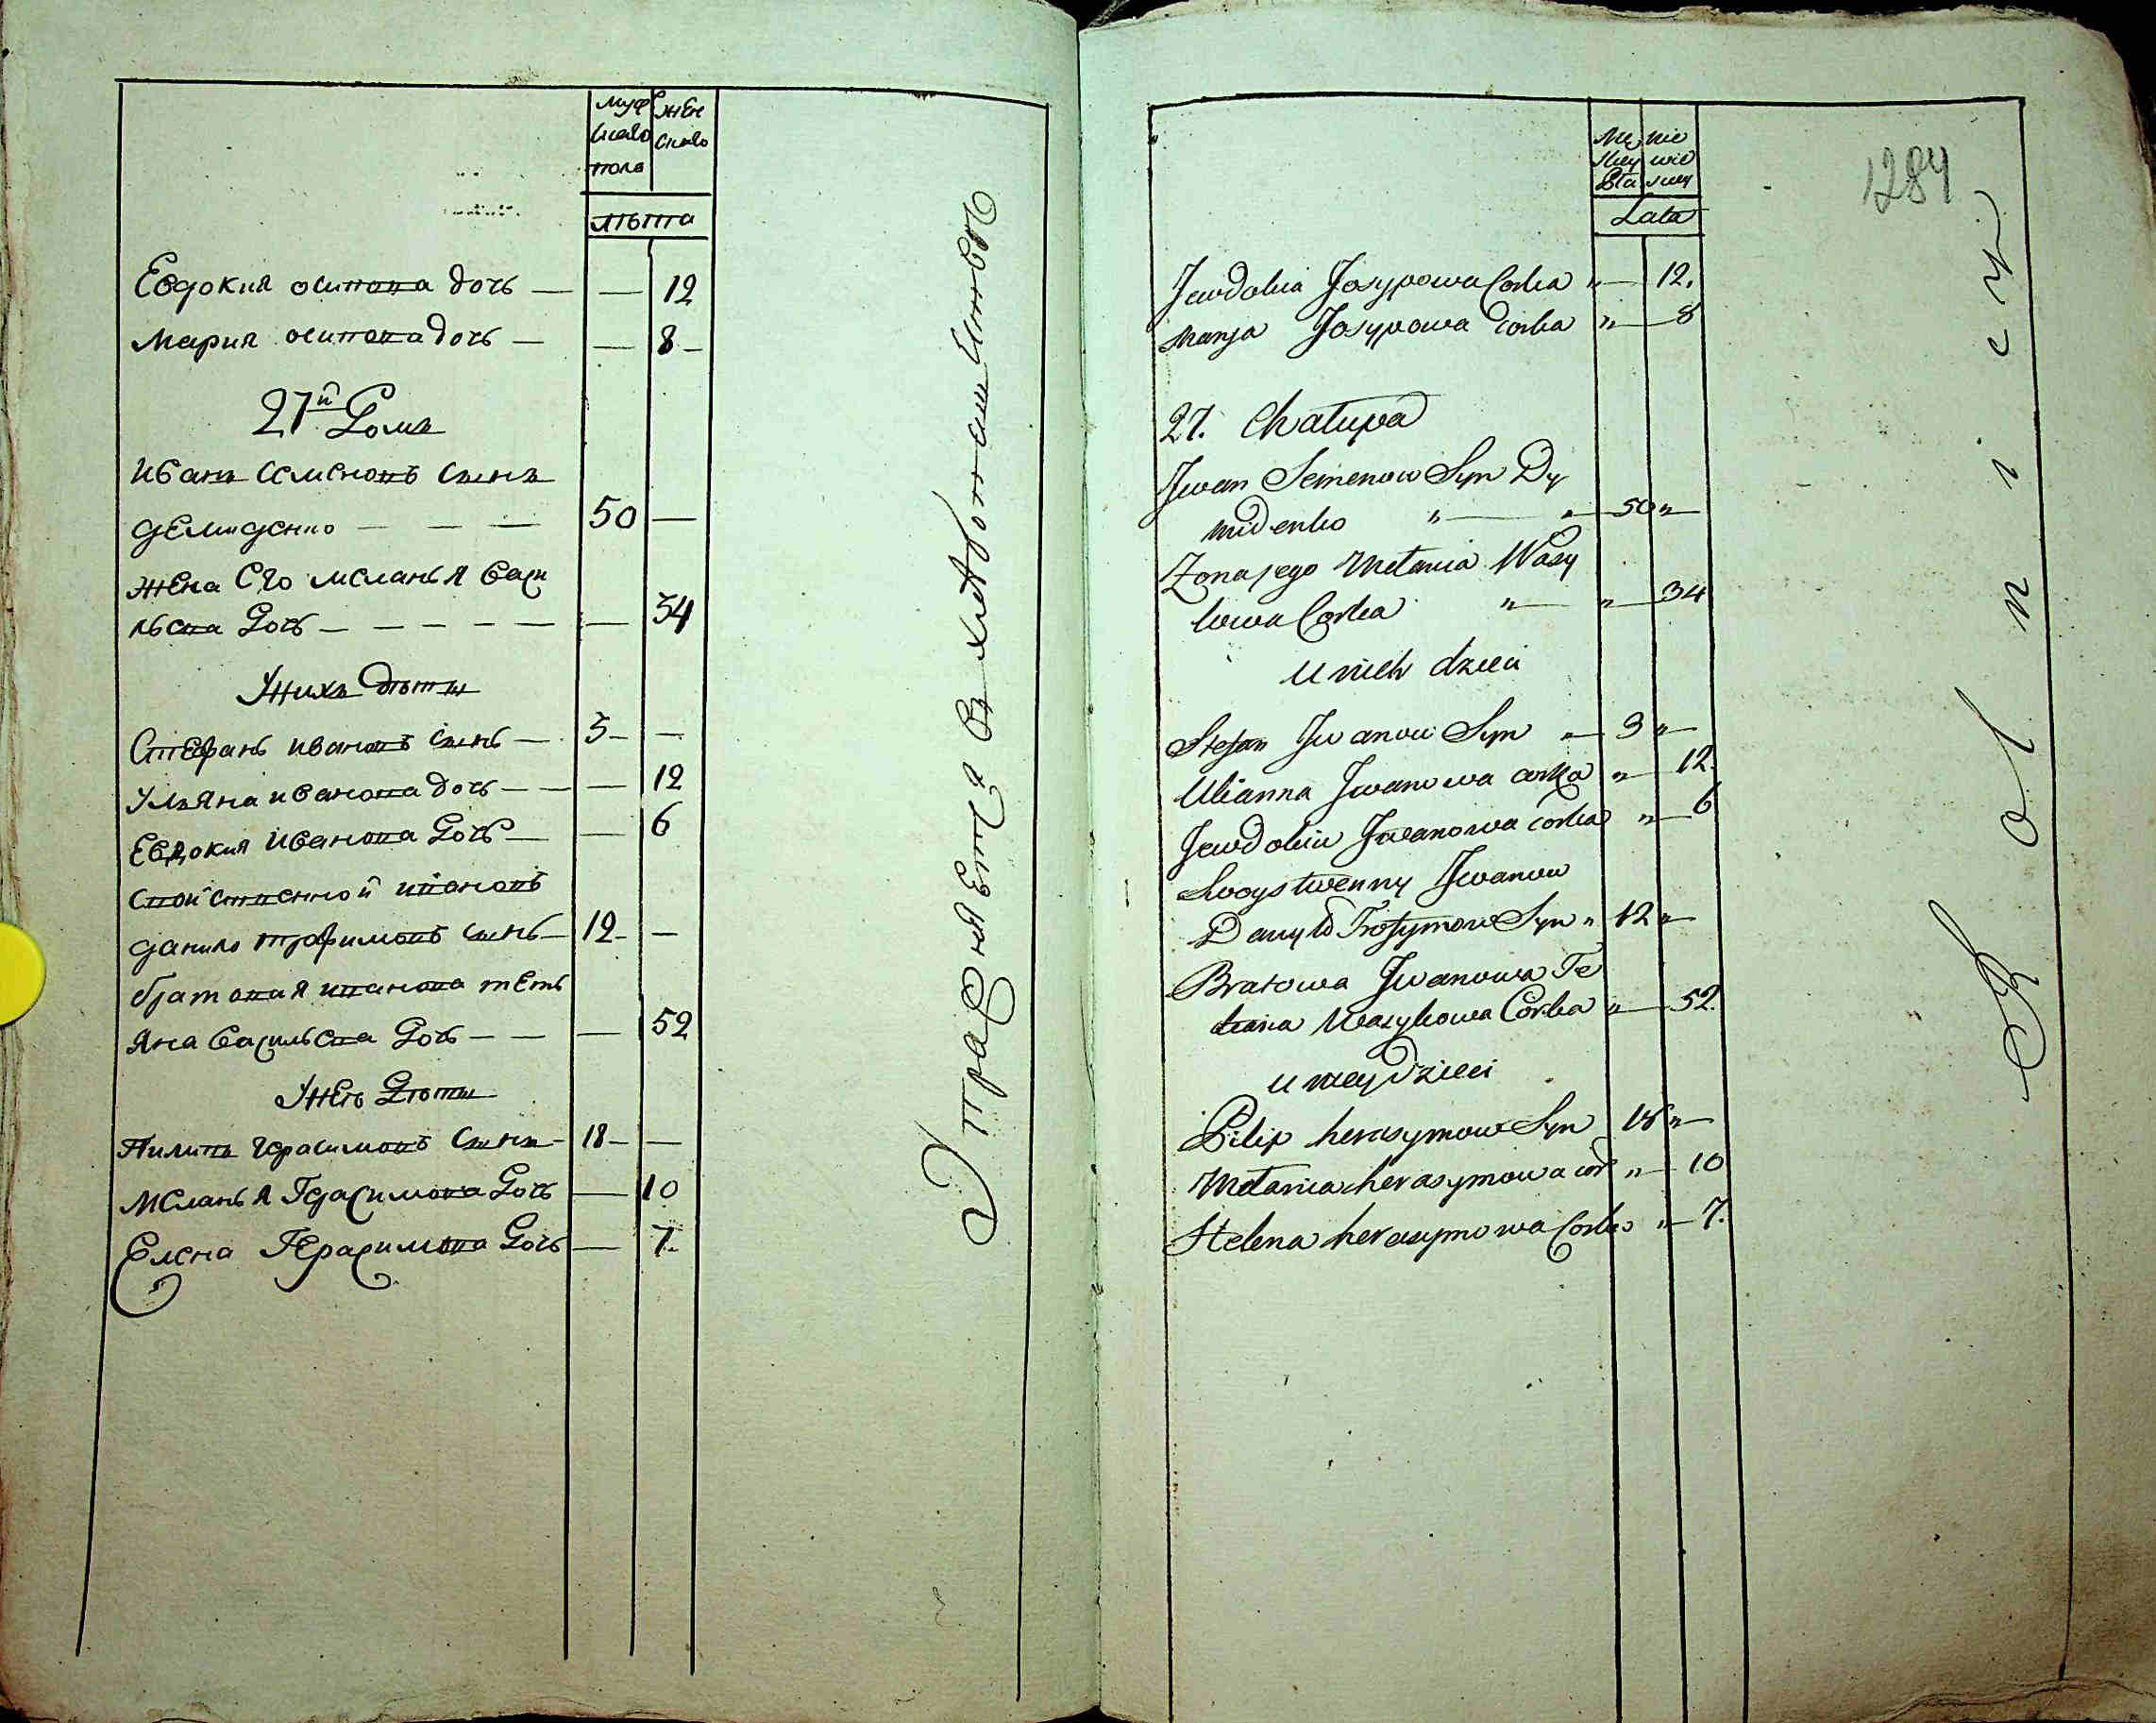 Муж
скаго
пола
Жен
скаго
лѣта
Евдокия осипова дочь — — 12
Мария осипова дочь — — 8 —
27й Домъ
Иванъ Семеновъ сынъ
Демиденко — — — 50 —
жена Его меланья васи
льева дочь — — — — — — 34
Унихъ дѣти
Стефанъ ивановъ сынъ — 3 — —
Ульяна иванова дочь — — — 12
Евдокия Иванова дочь — — 6
свойственной ивановъ
данило трофимовъ сынъ — 12 — —
братовая иванова теть
яна васильева дочь — — — 52
Унеѣ дѣти
Пилипъ герасимовъ сынъ — 18 — —
Меланья Герасимова дочь — 10
Елена Герасимова дочь — 7 —
Упражняетца въ хлебопашистве
Mę
skey
Płci
nie
wie
skey
Lata
1284
Jewdokia Josypowa Corka " — 12.
Marya Josypowa Corka " — 8
27. Chałupa
Jwan Semenow Syn Dy
midenko " — " — 50 " —
Zona jego Mełania Wasy
lowa Corka " — " — 34
U nich dzieci
Stefan Jwanow Syn " — 3 " —
Ulianna Jwanowa corka " — 12.
Jewdokia Jwanowa corka " — 6
Swoystwenny Jwanow
Danyło Trofymow Syn " 12 " —
Bratowa Jwanowa Te
tiana Wasylowa Corka " — 52.
u niey Dzieci
Pilip herasymow Syn 18 " —
Mełania herasymowa cor " — 10
Helena herasymowa Corka " — 7.
Rolnicy